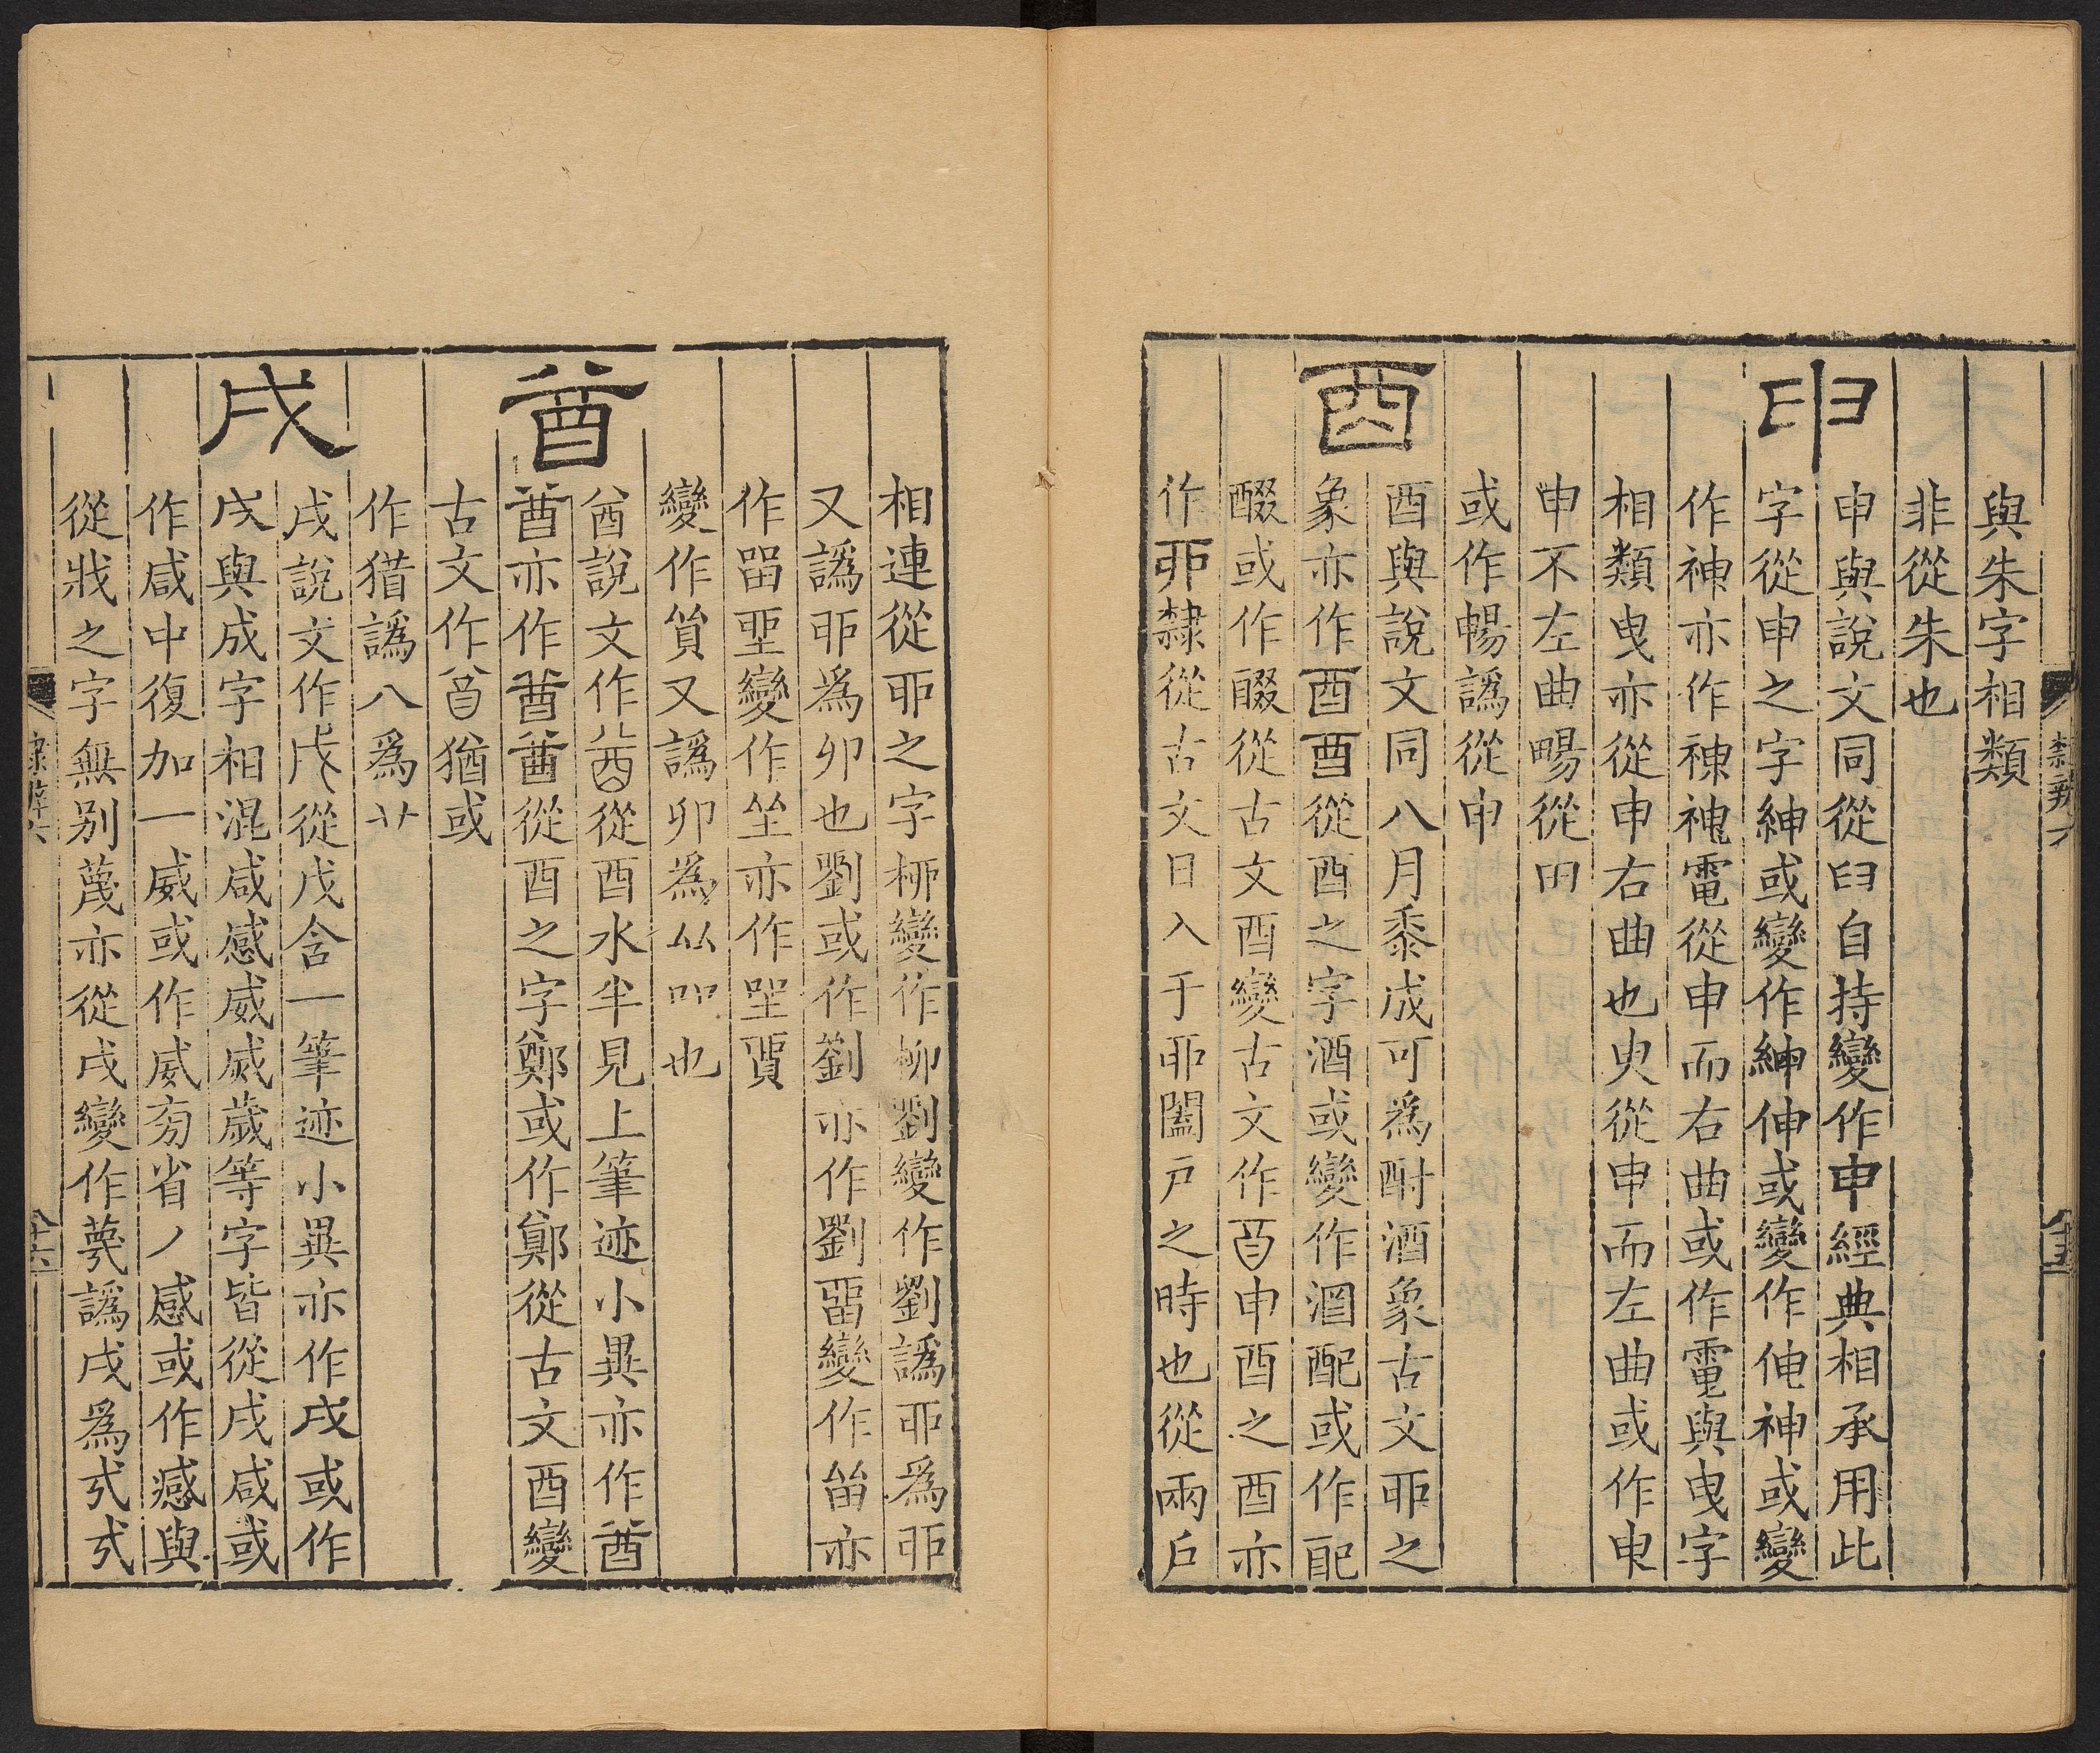 與朱字相類
非從朱也
申
申與說文同從𦥑自持變作申經典相承用此
字從申之字紳或變作紳伸或變作伸神或變
作神亦作神電從申而右曲或作電與曳字
相類曳亦從申右曲也臾從申而左曲或作
申不左曲畼從
或作暢譌從申
酉
酉與說文同八月黍成可爲酎酒象古文丣之
象亦作酉酉從酉之字酒或變作酒配或作配
醊或作醊從古文酉變古文作申酉之酉亦
作丣隸從古文日入于丣闔戸之時也從兩戶
相連從丣之字桺變作柳劉變作劉譌丣爲
又譌丣爲卯也劉或作劉亦作劉畱變作畄亦
作畱變作坐亦作貿
變作貿又譌卯爲吅也
酋
酋說文作酋從酉水半見上筆迹小異亦作酋
酋亦作從酉之字鄭或作鄭從古文酉變
古文作猶或
作猎譌八爲艹
戌
戌說文作戌從戊含一筆迹小異亦作戌或作
戌與成字相混咸感威烕歲等字皆從戌咸或
作咸中復加一威或作威夯省丿感或作感與
從戕之字無别蔑亦從戌變作譌戌爲弐
隸辨六
八十五
隸辨六
八十六